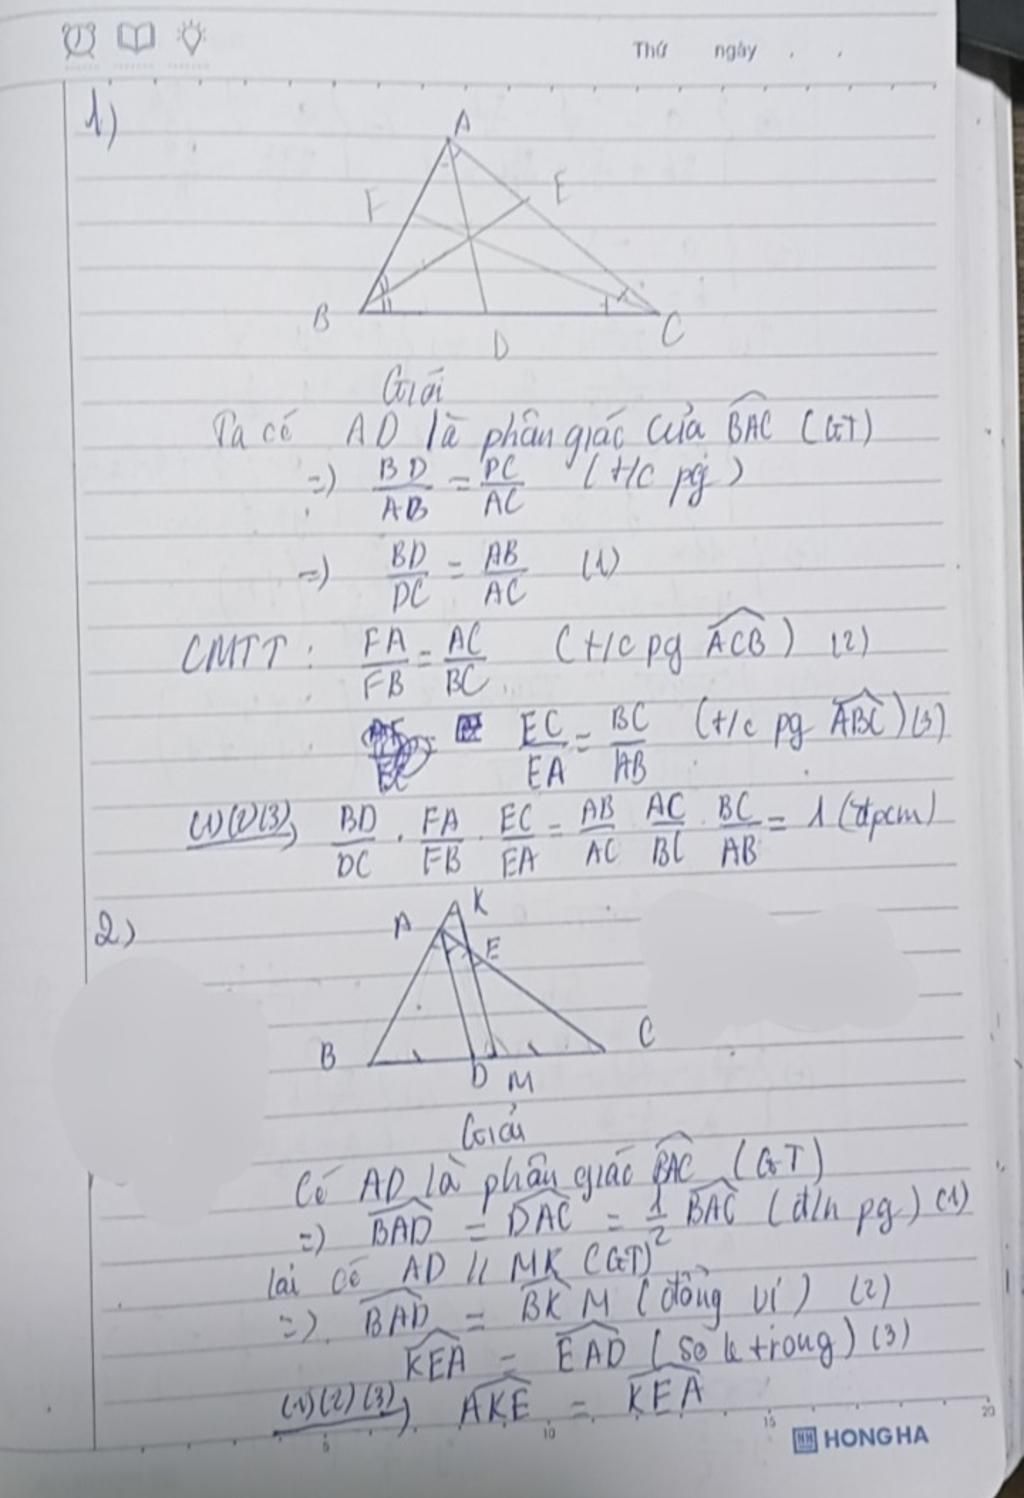 Thứ ngày . .
1)
A
F E
B D C
Giải
Ta có AD là phân giác của \widehat{BAC} (GT)
=) \frac{BD}{AB} = \frac{DC}{AC} (t/c pg)
=) \frac{BD}{DC} = \frac{AB}{AC} (1)
CMTT : \frac{FA}{FB} = \frac{AC}{BC} (t/c pg \widehat{ACB}) (2)
\frac{EC}{EA} = \frac{BC}{AB} (t/c pg \widehat{ABC}) (3)
(1)(2)(3), \frac{BD}{DC} . \frac{FA}{FB} . \frac{EC}{EA} = \frac{AB}{AC} \frac{AC}{BC} . \frac{BC}{AB} = 1 (đpcm)
2)
K
A E
B D M C
Giải
Có AD là phân giác \widehat{BAC} (GT)
=) \widehat{BAD} = \widehat{DAC} = \frac{1}{2} \widehat{BAC} (đ/n pg) (1)
lại có AD // MK (GT)
=) \widehat{BAD} = \widehat{BKM} (đồng vị) (2)
\widehat{KEA} = \widehat{EAD} (so le trong) (3)
(1)(2)(3), \widehat{AKE} = \widehat{KEA}
5 10 15 20
HH HONG HA